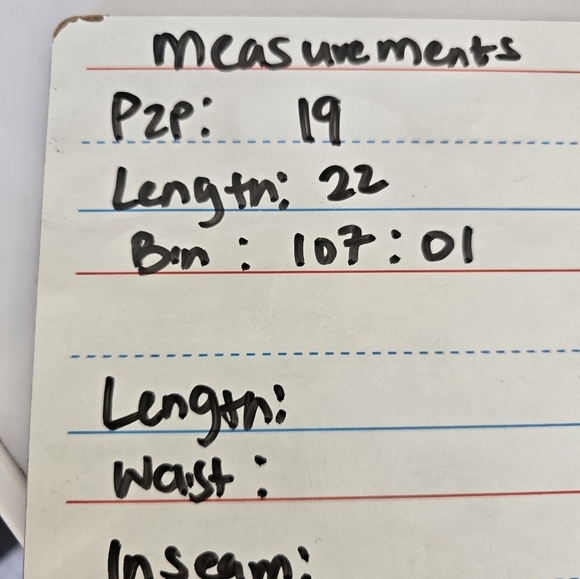 Measurements
P2P: 19
Length: 22
Bin : 107 : 01
Length:
Waist :
Inseam: